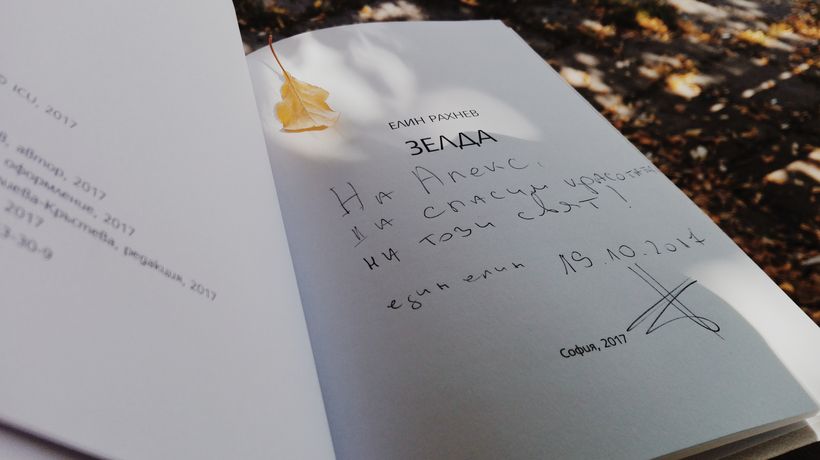 ICU, 2017
автор, 2017
оформление, 2017
Кръстева, редакция, 2017
2017
3-30-9
ЕЛИН РАХНЕВ
ЗЕЛДА
На Алекс,
да спасим красотата
на този свят!
един елин 19.10.2017
София, 2017